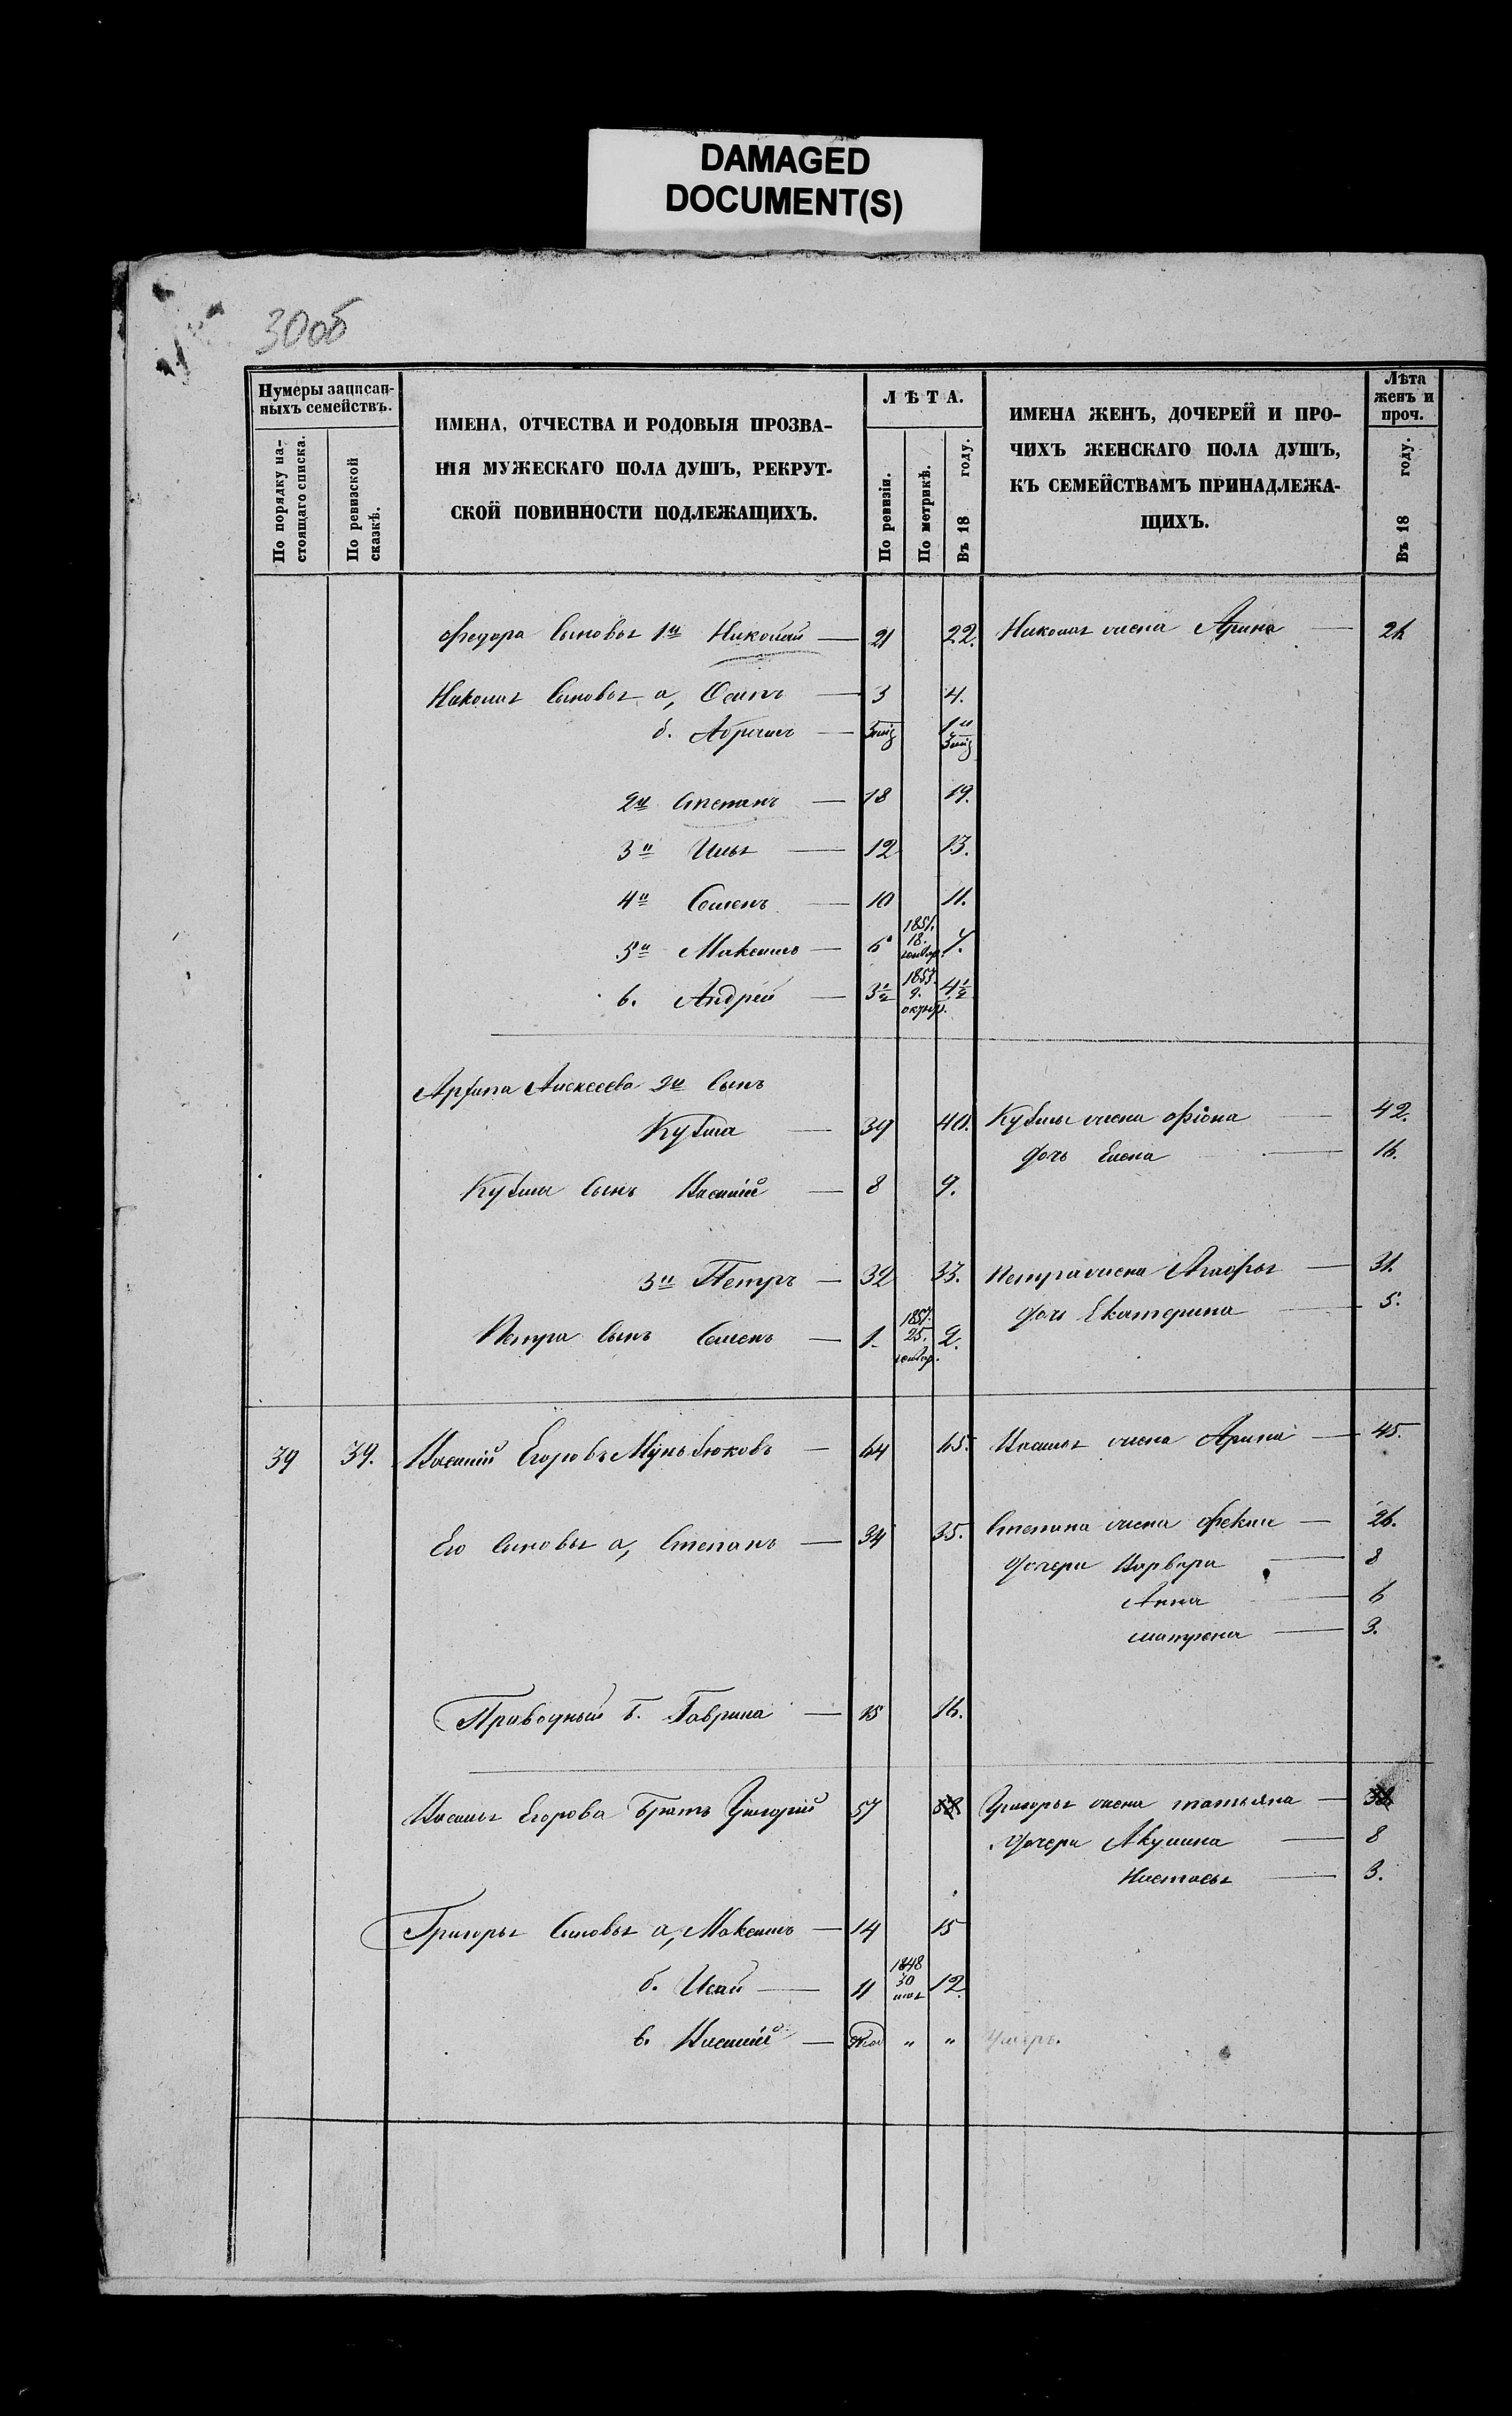 DAMAGED
DOCUMENT(S)
30об
Нумеры записан-
ныхъ семействъ.
По порядку на-
стоящаго списка.
По ревизской
сказкѣ.
ИМЕНА, ОТЧЕСТВА И РОДОВЫЯ ПРОЗВА-
НІЯ МУЖЕСКАГО ПОЛА ДУШЪ, РЕКРУТ-
СКОЙ ПОВИННОСТИ ПОДЛЕЖАЩИХЪ.
ЛѢТА.
По ревизіи.
По метрикѣ.
Въ 18 году.
ИМЕНА ЖЕНЪ, ДОЧЕРЕЙ И ПРО-
ЧИХЪ ЖЕНСКАГО ПОЛА ДУШЪ,
КЪ СЕМЕЙСТВАМЪ ПРИНАДЛЕЖА-
ЩИХЪ.
Лѣта
женъ и
проч.
Въ 18 году.
Федора сыновья 1й Николай — 21 22. Николая жена Арина —
Николая сыновья а, Осипъ — 3 4.
б. Абрамъ —
2й Степанъ — 18 19.
3й Илья — 12 13.
4й Семенъ — 10 11.
5й Максимъ — 6 1851. 18. генвар. 7.
6. Андрей — 3½ 1853. 9. октяб. 4½
Архипа Алексеева 2й сынъ
Кузьма — 39 40. Кузьмы жена Фіона — 42.
дочь Елена — 16.
Кузьмы сынъ Василій — 8 9.
3й Петръ — 32 33. Петра жена Агафья — 31.
дочь Екатерина — 5.
Петра сынъ Семенъ — 1. 1857. 25. генвар. 2.
39 39. Василій Егоровъ — 64 65. Василья жена Арина — 45.
Его сыновья а, Степанъ — 34 35. Степана жена Фекла — 26.
дочери Варвара — 8
Анна — 6
Матрена — 3.
Приводный б. Гаврила — 15 16.
Василья Егорова братъ Григорій 57 58 Григорья жена Татьяна — 38
дочери Акулина — 8
Настасья — 3.
Григорья сыновья а, Максимъ — 14 15
б. Исай — 11 1848 30 мая 12.
в. Василій — " " Умеръ.